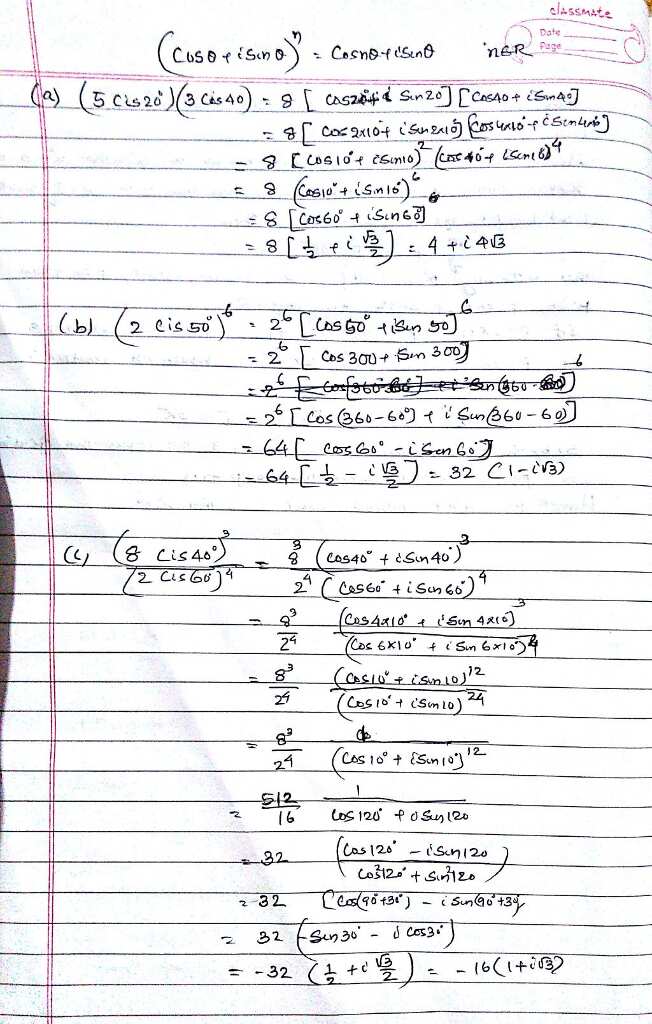 classmate
Date
Page
(Cosθ + iSinθ)^n = Cosnθ + iSinθ n∈R
(a) (5 Cis20°)(3 Cis40) = 8 [ Cos20° + i Sin20] [Cos40 + iSin40]
= 8 [ Cos 2x10 + iSin2x10] [Cos4x10° + iSin4x10]
= 8 [Cos10° + iSin10]^2 (Cos40° + iSin10)^4
= 8 (Cos10° + iSin10°)^6
= 8 [Cos60° + iSin60]
= 8 [1/2 + i √3/2] = 4 + i4√3
(b) (2 Cis50°)^6 = 2^6 [Cos50° + iSin50]^6
= 2^6 [Cos300 + iSin300]
= 2^6 [Cos(360-60)] + i Sin(360-60)]^6
= 2^6 [Cos(360-60°) + i Sin(360-60)]
= 64 [Cos60° - iSin60°]
= 64 [1/2 - i √3/2] = 32 (1-i√3)
(c) (8 Cis40°)^3 / (2 Cis60°)^4 = 8^3 (Cos40° + iSin40°)^3 / 2^4 (Cos60° + iSin60°)^4
= 8^3/2^4 (Cos4x10° + iSin4x10)^3 / (Cos6x10° + iSin6x10°)^4
= 8^3/2^4 (Cos10° + iSin10)^12 / (Cos10° + iSin10)^24
= 8^3/2^4 / (Cos10° + iSin10°)^12
= 512/16 1 / Cos120° + iSin120
= 32 (Cos120° - iSin120 / Cos²120° + Sin²120)
= 32 [Cos(90°+30°) - iSin(90°+30)]
= 32 (-Sin30° - iCos30°)
= -32 (1/2 + i √3/2) = -16(1+i√3)